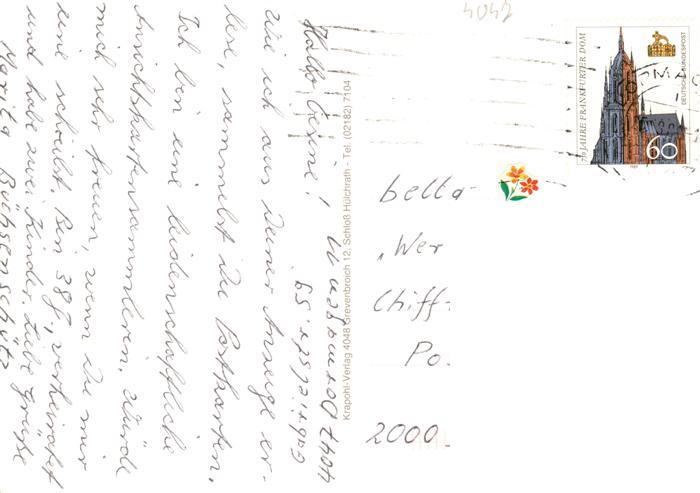 4047
750 JAHRE FRANKFURTER DOM
DEUTSCHE BUNDESPOST
60
bella
„Wer
Chiff
Po.
2000
Krapohl-Verlag 4048 Grevenbroich 12, Schloß Hülchrath - Tel. (02182) 7104
Hallo !
Wie ich aus Deiner Anzeige er-
lese, sammelst Du Postkarten.
Ich bin eine leidenschaftliche
Ansichtskartensammlerin. Würde
mich sehr freuen, wenn Du mir
eine schreibst. Bin 38 J, verheiratet
und habe zwei Kinder. Liebe Grüße
4047 Dormagen 11